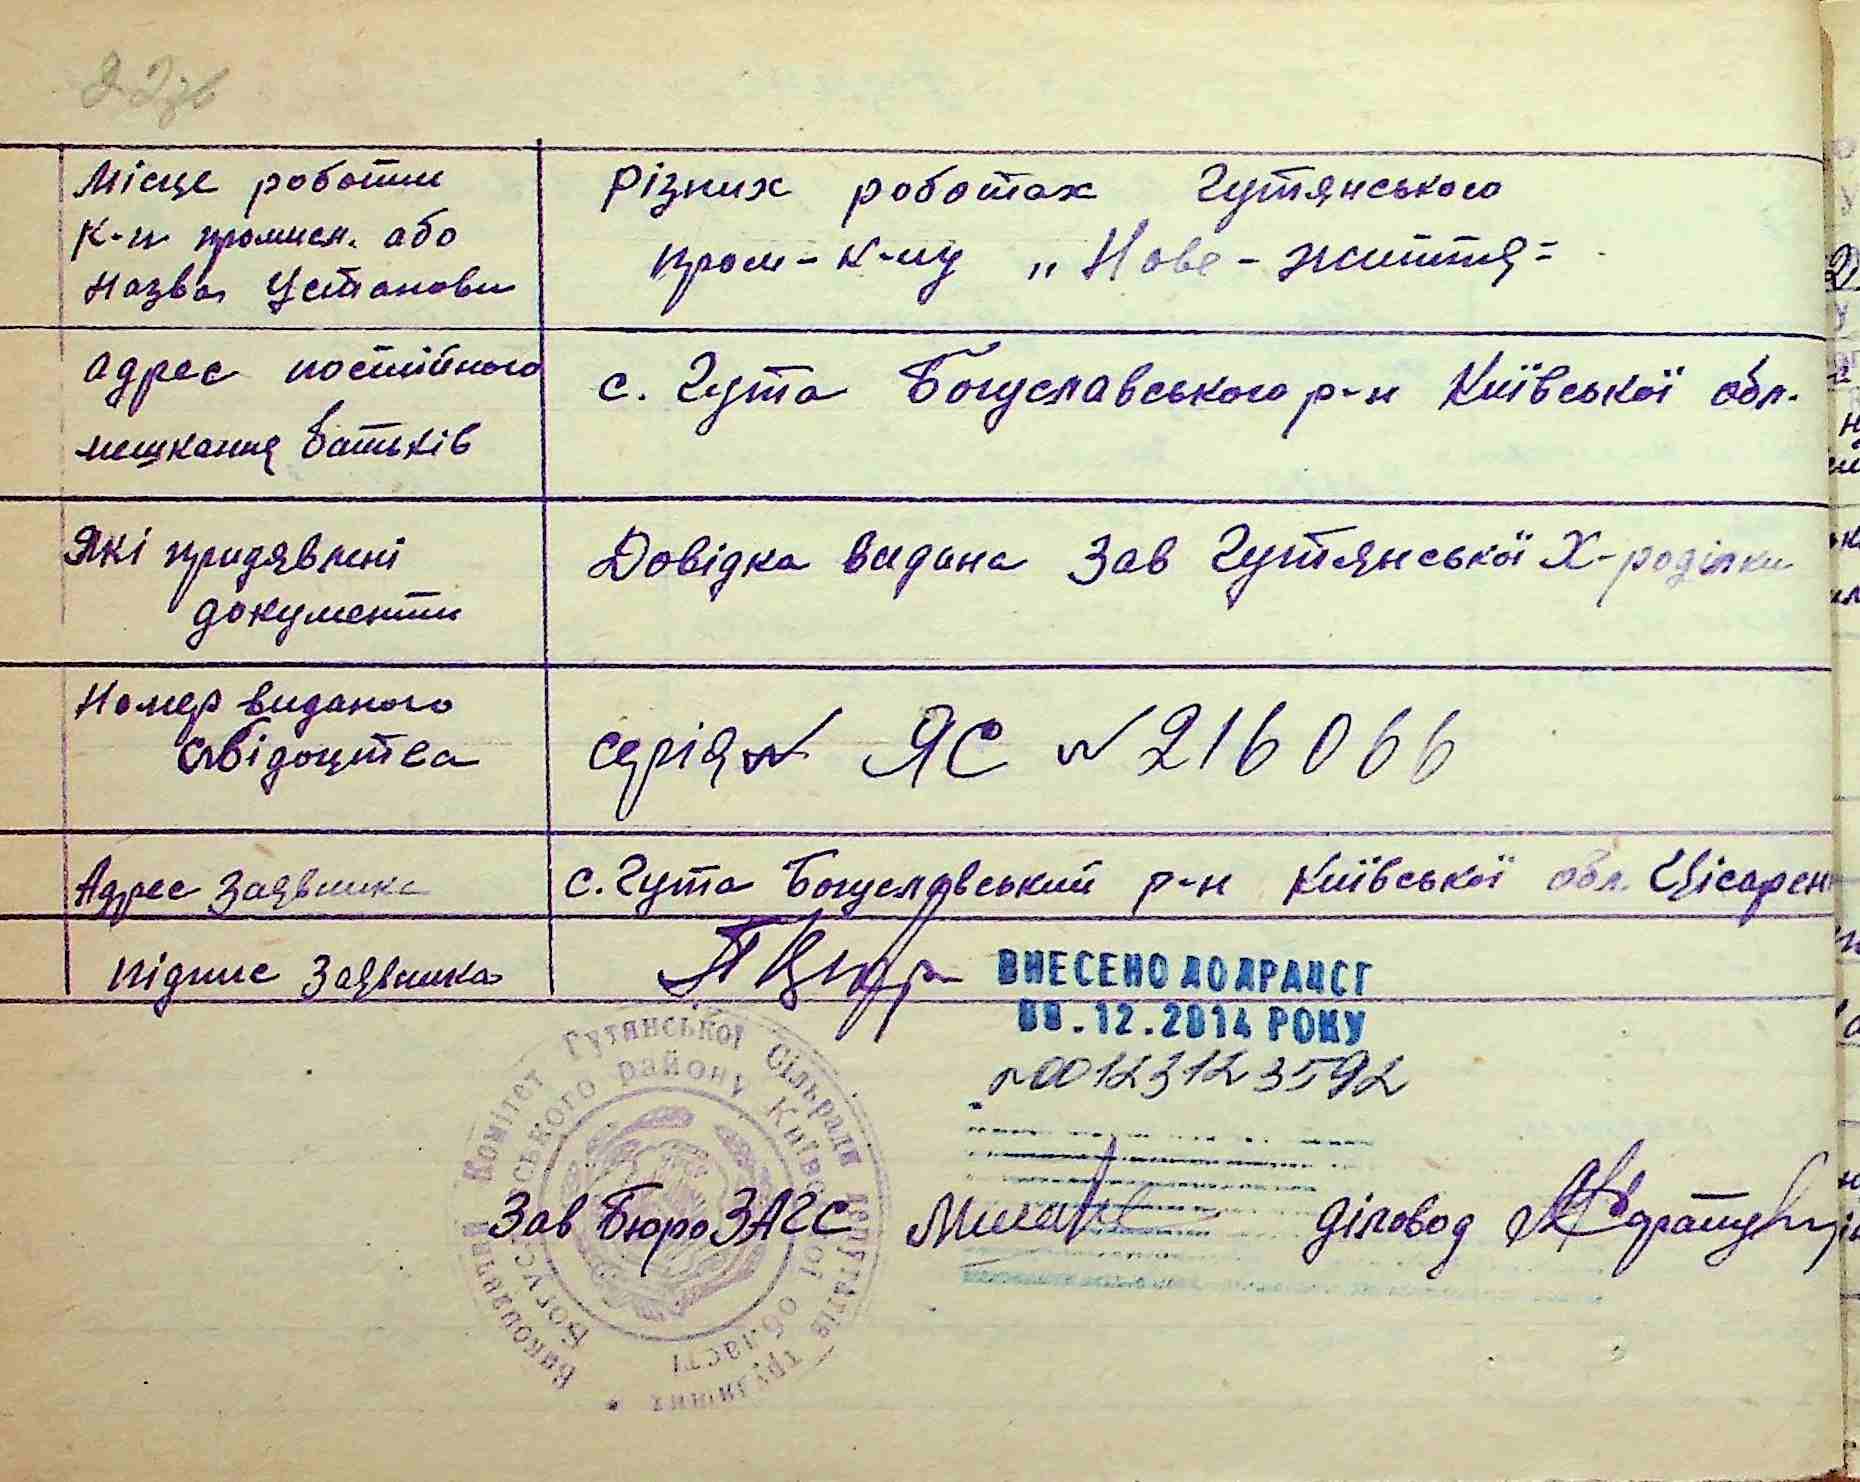 22зв
Місце роботи
К-п промисл. або
Назва Установи
Різних роботах Гутянського
пром-к-пу „Нове-життя"
Адрес постійного
мешкання батьків
с. Гута Богуславського р-н Київської обл.
Які придявлені
документи
Довідка видана Зав Гутянської Х-роділки
Номер виданого
свідоцтва
серія № ЯС № 216066
Адрес Заявника
с. Гута Богуславський р-н Київської обл. Цісарен
підпис Заявника
ВНЕСЕНО ДО ДРАЦСГ
.12.2014 РОКУ
№00123123592
Виконавчий Комітет Гутянської Сільради Депутатів трудящих
Богуславського району Київської області
Зав Бюро ЗАГС
Діловод